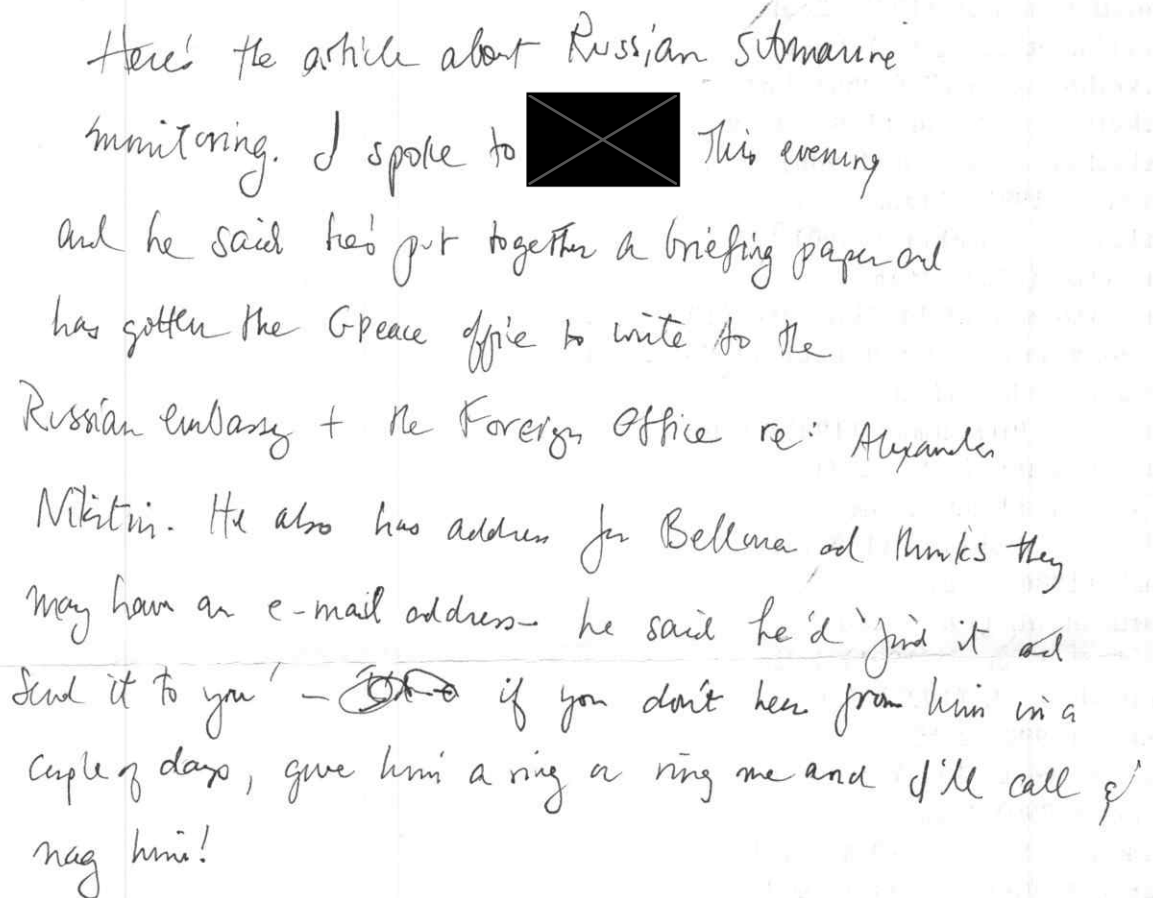 Here's the article about Russian submarine
monitoring. I spoke to this evening
and he said he's put together a briefing paper and
has gotten the GPeace office to write to the
Russian embassy + the Foreign Office re: Alexander
Nikitin. He also has address for Bellona and thinks they
may have an e-mail address - he said he'd 'find it and
send it to you' - if you don't hear from him in a
couple of days, give him a ring or ring me and I'll call &
nag him!